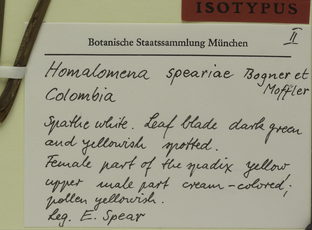 ISOTYPUS
II
Botanische Staatssammlung München
Homalomena speariae Bogner et
Moffler
Colombia
Spathe white. Leaf blade dark green
and yellowish spotted.
Female part of the spadix yellow
upper male part cream-colored;
pollen yellowish.
Leg. E. Spear